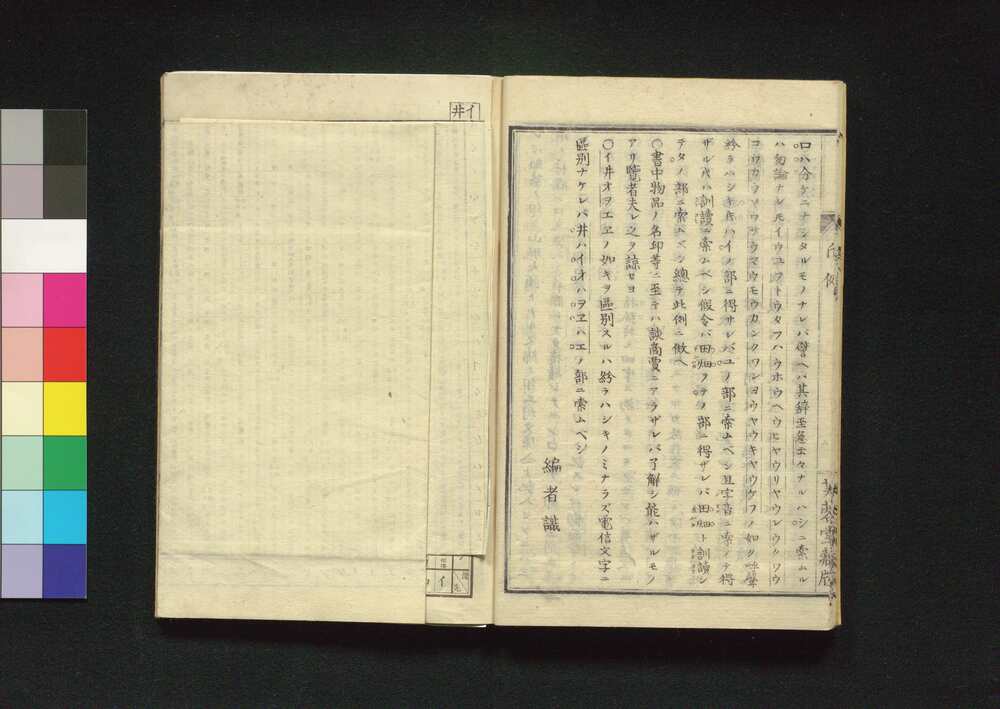 口ハ分ケニナシタルモノナレバ譬ヘハ其辭至急云々ナルハシニ索ムル
ハ勿論ナレモイウユフトウタフハウホウヘウヒヤウリヤウレウクワウ
コウカウソウサウスウモウカンクワンヨウヤウキヤウケフノ如ク呼聲
紛ラハシキ者ハイノ部ニ得サレバユノ部ニ索ムベシ且字音ニ索ノテ得
ザル片ハ訓讀ニ索ムベシ假令バ田畑フテノ部ニ得ザレバ田畑ト訓讀シ
テタノ部ニ索ムベシ總テ此例ニ傚ヘ
〇書中物品ノ名印等ニ至テハ該商賣ニアラザレバ了解シ能ハザルモノ
アリ覽者夫レ之ヲ諒セヨ
〇イ井オヲエヱノ如キヲ區別スルハ紛ラハシキノミナラズ電信文字ニ
區別ナケレバ井ハイオハヲヱハエノ部ニ索ムベシ
編者識
イ井
イ